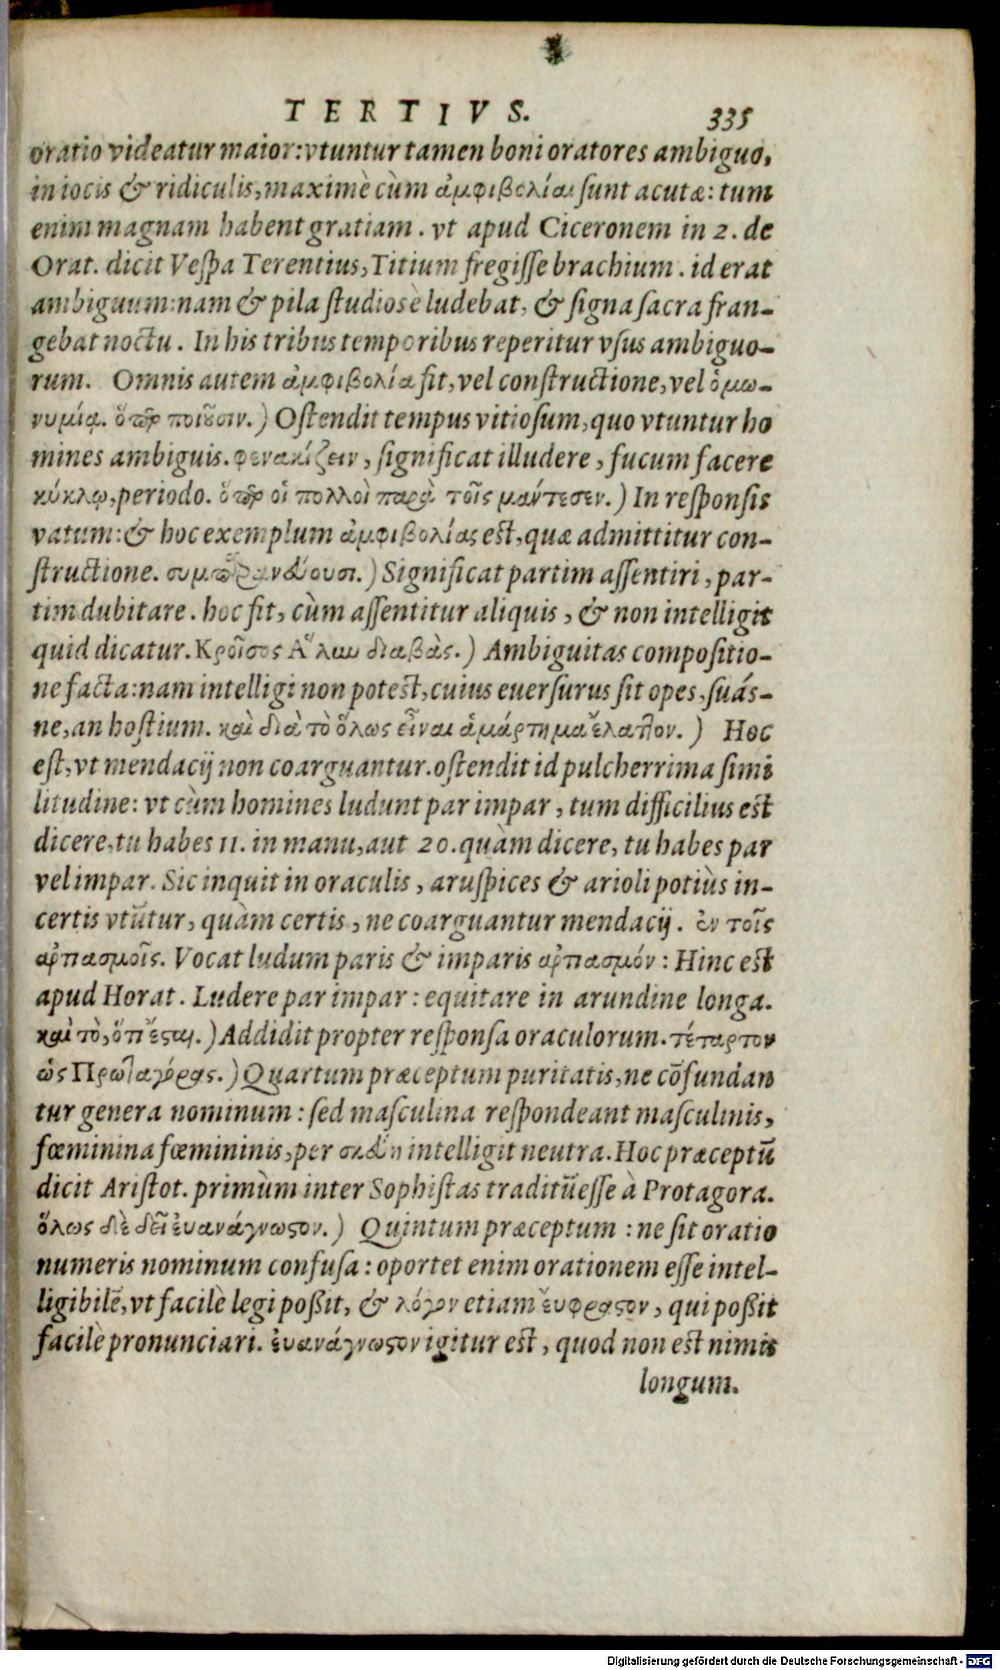 TERTIVS. 335
oratio videatur maior: vtuntur tamen boni oratores ambiguo,
in iocis & ridiculis, maximè cùm ἀμφιβολίαι sunt acutæ: tum
enim magnam habent gratiam. vt apud Ciceronem in 2. de
Orat. dicit Vespa Terentius, Titium fregisse brachium. id erat
ambiguum: nam & pila studiosè ludebat, & signa sacra fran-
gebat noctu. In his tribus temporibus reperitur vsus ambiguo-
rum. Omnis autem ἀμφιβολία fit, vel constructione, vel ὁμω-
νυμίᾳ. ὅπερ ποιοῦσιν.) Ostendit tempus vitiosum, quo vtuntur ho
mines ambiguis. φενακίζειν, significat illudere, fucum facere
κύκλῳ, periodo. ὅπερ οἱ πολλοὶ παρὰ τοῖς μαντεσεν.) In responsis
vatum: & hoc exemplum ἀμφιβολίας est, quæ admittitur con-
structione. συμπαρανεύουσι.) Significat partim assentiri, par-
tim dubitare. hoc fit, cùm assentitur aliquis, & non intelligit
quid dicatur. Κροῖσος Ἅλων διαβὰς.) Ambiguitas compositio-
ne facta: nam intelligi non potest, cuius euersurus sit opes, suás-
ne, an hostium. καὶ διὰ τὸ ὅλως εἶναι ἁμάρτημα ἔλαττον.) Hoc
est, vt mendacij non coarguantur. ostendit id pulcherrima simi
litudine: vt cùm homines ludunt par impar, tum difficilius est
dicere, tu habes 11. in manu, aut 20. quàm dicere, tu habes par
vel impar. Sic inquit in oraculis, aruspices & arioli potiùs in-
certis vtūtur, quàm certis, ne coarguantur mendacij. ἐν τοῖς
ἁρπασμοῖς. Vocat ludum paris & imparis ἁρπασμόν: Hinc est
apud Horat. Ludere par impar: equitare in arundine longa.
καὶ τὸ, ὅτι ἔσται.) Addidit propter responsa oraculorum. τέταρτον
ὡς Πρωταγόρας.) Quartum præceptum puritatis, ne cōfundan
tur genera nominum: sed masculina respondeant masculinis,
fœminina fœmininis, per σκεύη intelligit neutra. Hoc præceptū
dicit Aristot. primùm inter Sophistas traditū esse à Protagora.
ὅλως δὲ δεῖ ἐυανάγνωστον.) Quintum præceptum: ne sit oratio
numeris nominum confusa: oportet enim orationem esse intel-
ligibilē, vt facilè legi poßit, & λόγον etiam ἔυφραστον, qui poßit
facilè pronunciari. ἐυανάγνωστον igitur est, quod non est nimis
longum.
Digitalisierung gefördert durch die Deutsche Forschungsgemeinschaft - DFG